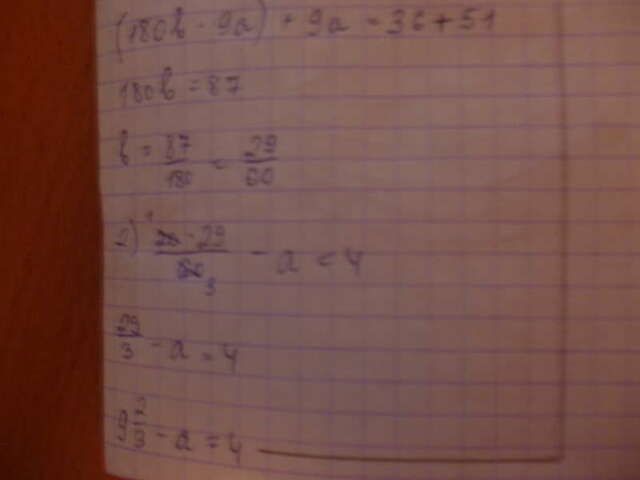 (180b - 9a) + 9a = 36 + 51
180b = 87
b = 87/180 = 29/60
2) 20 · 29/60 3 - a = 4
29/3 - a = 4
9 2/3 - a = 4